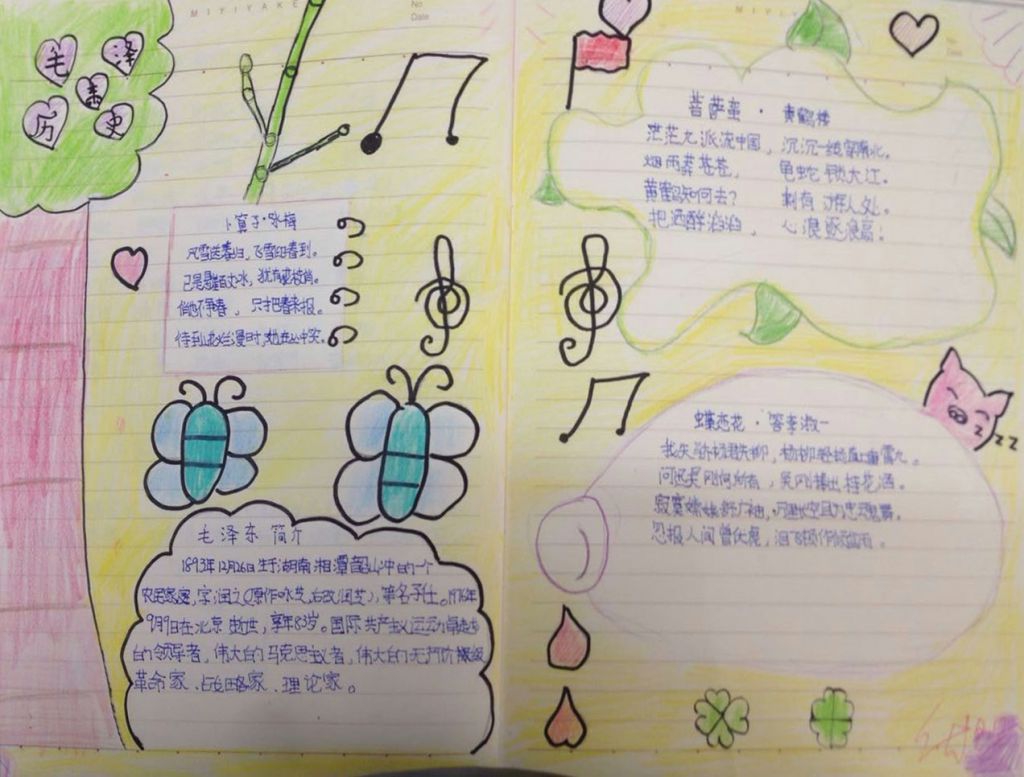 MIYIYAKE
No
Date
毛 泽
东
历 史
卜算子·咏梅
风雪送春归，飞雪迎春到。
已是悬百丈冰，犹有花枝俏。
俏也不争春，只才把春来报。
待到山花烂漫时，她在丛中笑。
毛泽东简介
1893年12月26日生于湖南湘潭韶山冲的一个
农民家庭，字润之（原作咏芝，后改润芝），笔名子任。1976年
9月9日在北京逝世，享年83岁。国际共产主义运动
的领导者，伟大的马克思主义者，伟大的无产阶级
革命家、战略家、理论家。
菩萨蛮·黄鹤楼
茫茫九派流中国，沉沉一线穿南北。
烟雨莽苍苍，龟蛇锁大江。
黄鹤知何去？剩有游人处。
把酒酹滔滔，心浪逐浪高！
蝶恋花·答李淑一
我失骄杨君失柳，杨柳轻扬直上重霄九。
问讯吴刚何所有，吴刚捧出桂花酒。
寂寞嫦娥舒广袖，万里长空且为忠魂舞。
忽报人间曾伏虎，泪飞顿作倾盆雨。
z z z